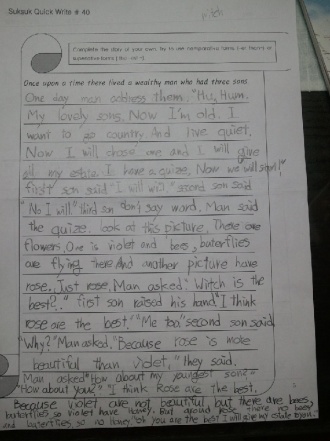 Suksuk Quick Write # 40
Complete the story of your own. Try to use comparative forms (-er than) or superlative forms (-est)
Once upon a time there lived a wealthy man who had three sons.
One day man address them. "Hu, Hum.
My lovely sons, Now I'm old. I
want to go country. And live quiet.
Now I will chose one and I will give
all my estate. I have a quize. Now we will start!"
first son said "I will win" second son said
"No I will" third son don't say word. Man said
the quize. look at this picture. These are
flowers. One is violet and bees, buterflies
are flying there And another picture have
rose.. Just rose, Man asked: Witch is the
best?.." first son raised his hand "I think
rose are the best." "Me too" second son said.
"Why?" Man asked. "Because rose is more
beautiful than violet." they said.
Man asked "How about my youngest sone"
"How about you?" "I think Rose are the best.
Because violet are not beautiful, but there are bees,
buterflies so violet have honey. But around rose there no bees
and buterflies, so no honey. "Oh you are the best I will give my